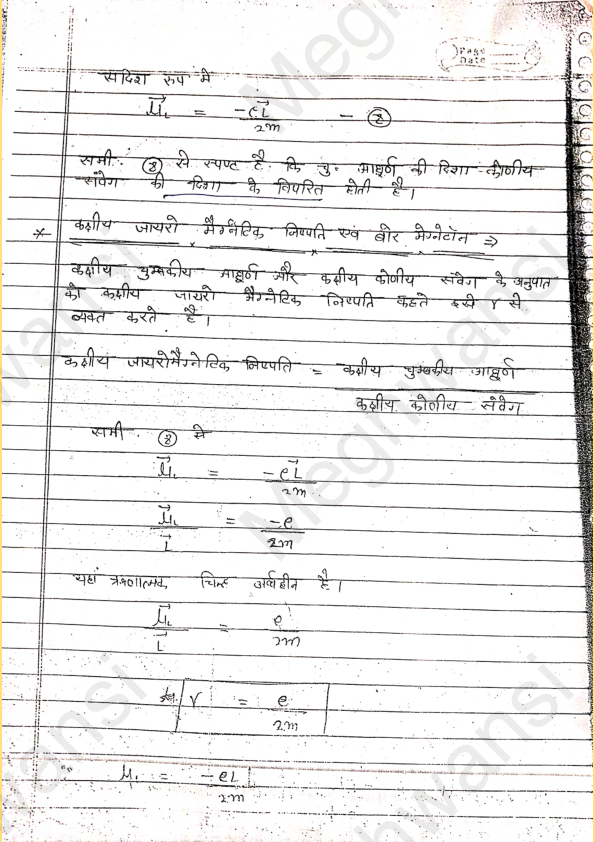 Page
Date
सदिश रूप में
μ⃗L = -eL⃗ / 2m - ⑧
समी. ⑧ से स्पष्ट है कि चु. आघूर्ण की दिशा कोणीय
संवेग की दिशा के विपरित होती है।
* कक्षीय जायरो मैग्नेटिक निष्पति एवं बोर मेग्नेटॉन ⇒
कक्षीय चुम्बकीय आघूर्ण और कक्षीय कोणीय संवेग के अनुपात
को कक्षीय जायरो मैग्नेटिक निष्पति कहते इसे γ से
व्यक्त करते है।
कक्षीय जायरोमैग्नेटिक निष्पति = कक्षीय चुम्बकीय आघूर्ण
कक्षीय कोणीय संवेग
समी. ⑧ से
μ⃗L = -eL⃗ / 2m
μ⃗L / L⃗ = -e / 2m
यहां ऋणात्मक चिन्ह अर्थहीन है।
μ⃗L / L⃗ = e / 2m
γ = e / 2m
∵ μL = -eL / 2m
Meghwansi